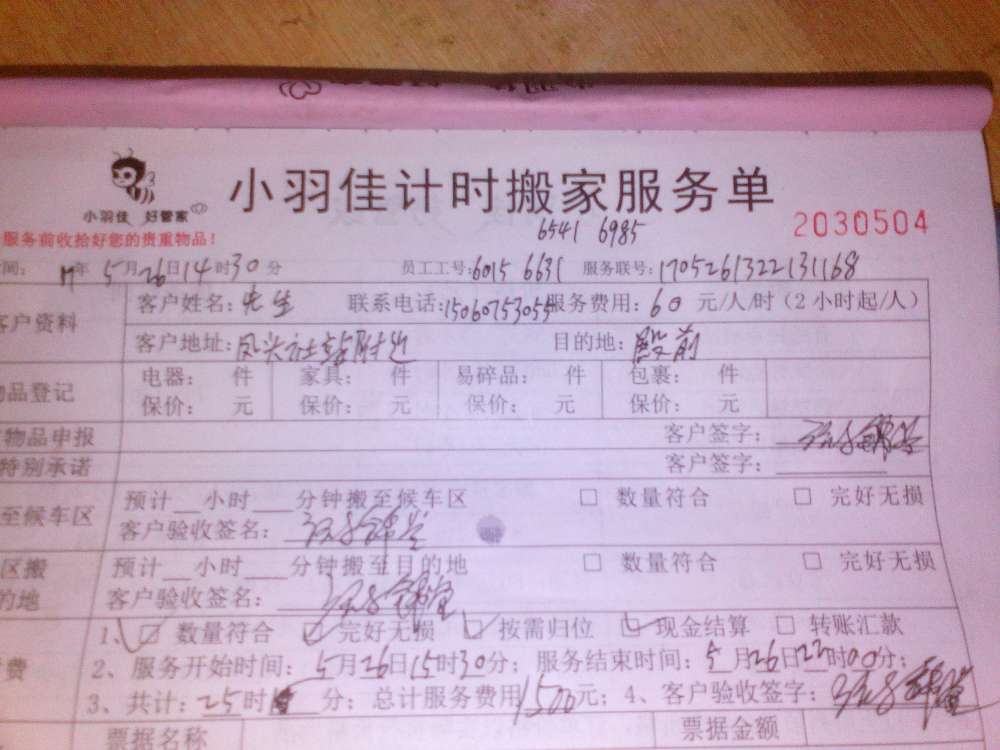 小羽佳 好管家
小羽佳计时搬家服务单
6541 6985
2030504
服务前收拾好您的贵重物品！
间： 17年5月26日14时30分 员工工号：6015 6631 服务联号：1705261322131168
客户资料
客户姓名：先生 联系电话：15060753055 服务费用：60元/人/时（2小时起/人）
客户地址：凤头社站附近 目的地：殿前
物品登记
电器： 件 家具： 件 易碎品： 件 包裹： 件
保价： 元 保价： 元 保价： 元 保价： 元
物品申报 客户签字：
特别承诺 客户签字：
至候车区
预计 小时 分钟搬至候车区 □ 数量符合 □ 完好无损
客户验收签名：
区搬
的地
预计 小时 分钟搬至目的地 □ 数量符合 □ 完好无损
客户验收签名：
费
1、☑ 数量符合 ☑ 完好无损 ☑ 按需归位 ☑ 现金结算 □ 转账汇款
2、服务开始时间：5月26日15时30分；服务结束时间：5月26日22时00分；
3、共计：25时 分；总计服务费用1500元；4、客户验收签字：
票据名称 票据金额